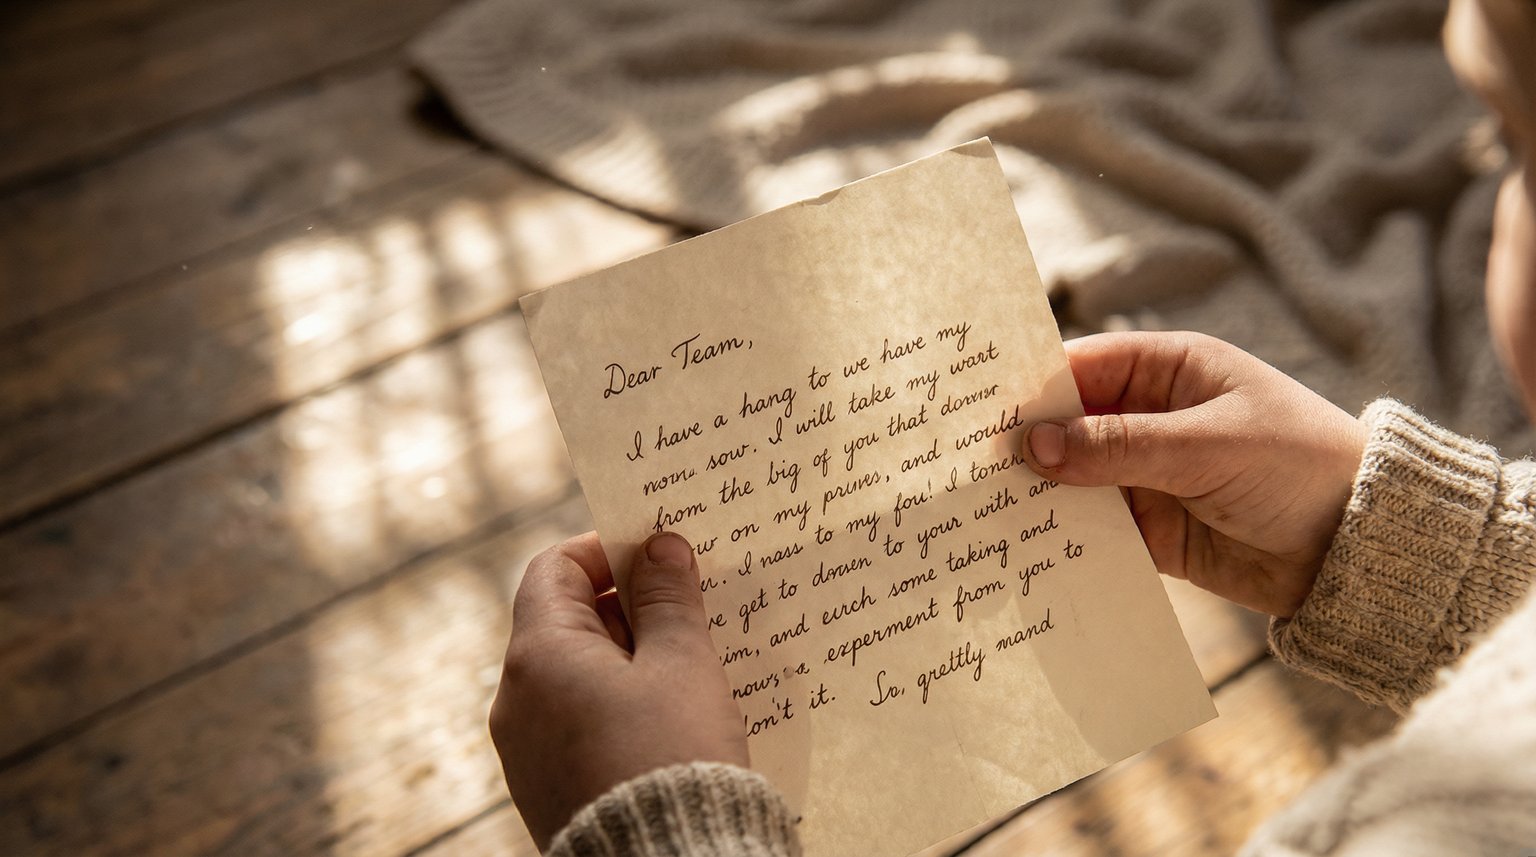 Dear Team,
I have a hang to we have my
sow. I will take my wart
from the big of you that
on my pruves, and would
I nass to my fou! I
get to dowen to your with
and eurch some taking and
experment from you to
it. So, grettly mand